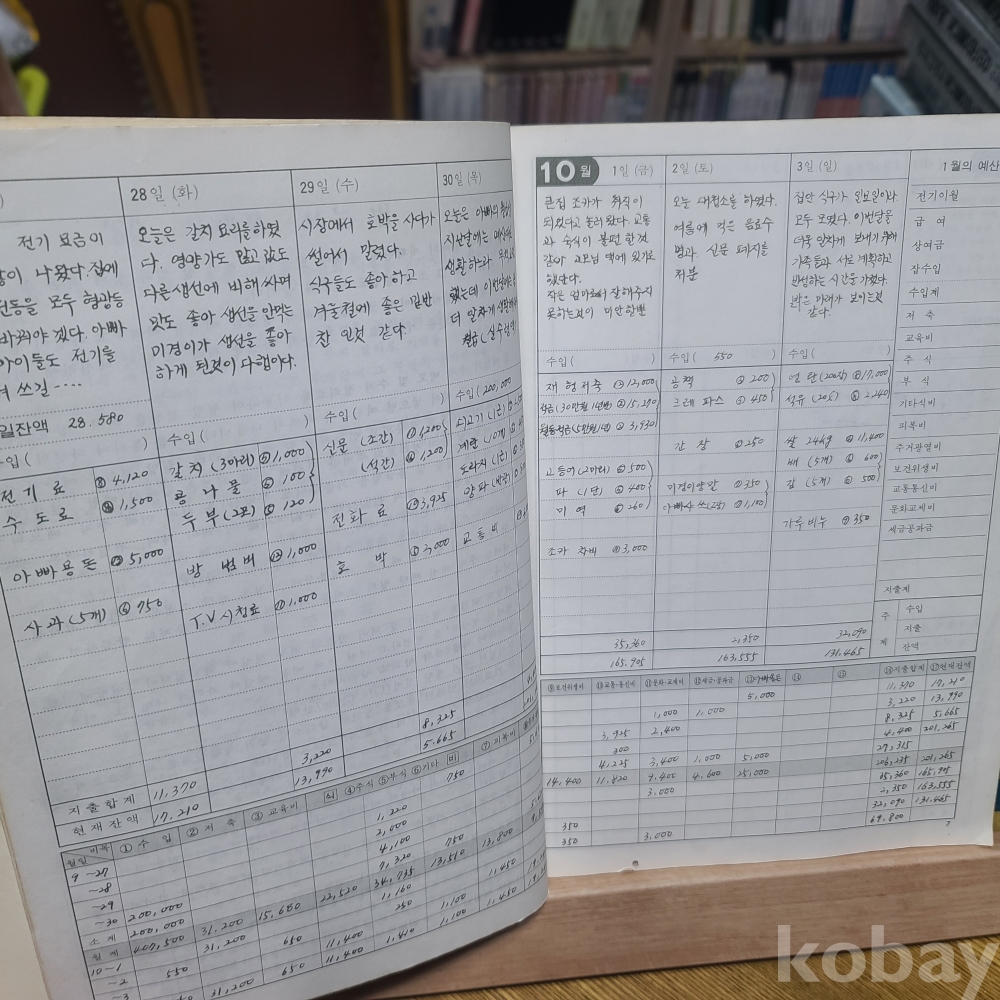 28일 (화)
29일 (수)
30일 (목)
전기 요금이
나왔다. 집에
모두 형광등
바꿔야 겠다. 아빠
아이들도 전기를
쓰길 ....
오늘은 갈치 요리를 하였
다. 영양가도 많고 값도
다른생선에 비해 싸며
맛도 좋아 생선을 안먹는
미경이가 생선을 좋아
하게 된것이 다행이다.
시장에서 호박을 사다가
썰어서 말렸다.
식구들도 좋아 하고
겨울철에 좋은 밑반
찬 인것 같다.
오늘은 아빠의
지난달에는
더 알차게 생활
일잔액 28.580
수입 (
수입 (
수입 (200,000
전기료 4,120
수도료 1,500
아빠용돈 ⑬ 5,000
사과 (5개) ⑥ 750
갈치 (3마리) ⑤ 1,000
콩나물 ⑤ 100
두부 (2모) ⑤ 120
방범비 ⑫ 1,000
T.V 시청료 ⑪ 1,000
신문 (조간) ⑪ 1,200
(석간) ⑪ 1,200
전화료 ⑩ 3,925
호박 ⑤ 2,000
쇠고기 (1근)
계란 (10개)
도라지 (1근)
양파
교통비
지출합계 11.370 3,220 8,325
현재잔액 17.210 13,990 5.665
비목 ① 수입 ② 저축 ③ 교육비 ④ 주식 ⑤ 부식 ⑥ 기타 ⑦ 피복비
월일
9 ~27 1,220 750
~28 2,000
~29 4,100
~30 200,000 7,320 750
소계 200,000 31,200 15,680 22,520 34,735 13,510 13,800
월계 407,500 31,200 1,160
10 ~1 650 11,400 250 1,100 1,450
~2 550 650 11,400 1,410 1,100 1,450
~3 31,200
10월 1일 (금)
2일 (토)
3일 (일)
1월의 예산
큰집 조카가 취직이
되었다고 올라왔다. 교통
과 숙식이 불편 한것
같아 고모님 댁에 있기로
했단다.
작은 엄마로서 잘해주지
못하는것이 미안할뿐
오늘 대청소를 하였다.
여름에 먹은 음료수
병과 신문 폐지를
처분
집안 식구가 일요일이라
모두 모였다. 이번달을
더욱 알차게 보내기 위해
가족들과 서로 계획하고
반성하는 시간을 가졌다.
밝은 미래가 보이는것
같다.
수입 ( )
수입 ( 550 )
수입 ( )
재형저축 ② 12,000
적금 (30만원 1년반) ② 15,270
월동적금 (5만원/1년) ② 3,930
고등어 (2마리) ⑤ 500
파 (1단) ⑤ 400
미역 ⑤ 260
조카 차비 ⑪ 3,000
35,360
165.905
공책 ③ 200
크레파스 ③ 450
간장 ⑤ 250
미경이양말 ⑦ 350
아빠 ⑦ 1,100
2,350
163,555
연탄 (200장) ⑧ 17,000
석유 (20ℓ) ⑧ 2,240
쌀 24kg ④ 11,400
배 (5개) ⑥ 600
감 (5개) ⑥ 500
가루비누 ⑨ 350
32,090
131.465
전기이월
급여
상여금
잡수입
수입계
저축
교육비
주식
부식
기타식비
피복비
주거광열비
보건위생비
교통통신비
문화교제비
세금공과금
지출계
주 수입
지출
계 잔액
⑨보건위생비 ⑩교통·통신비 ⑪문화·교제비 ⑫세금·공과금 ⑬아빠용돈 ⑭ ⑮ ⑯지출합계 ⑰현재잔액
5,000 11,370 17,210
1,000 1,000 3,220 13,990
3,925 2,400 8,325 5,665
300 4,400 201,265
4,225 3,400 1,000 5,000 27,315
14,400 11,820 9,400 4,600 25,000 206,235 201,265
3,000 35,360 165,905
2,350 163,555
350 32,090 131,465
350 3,000 69,800
kobay